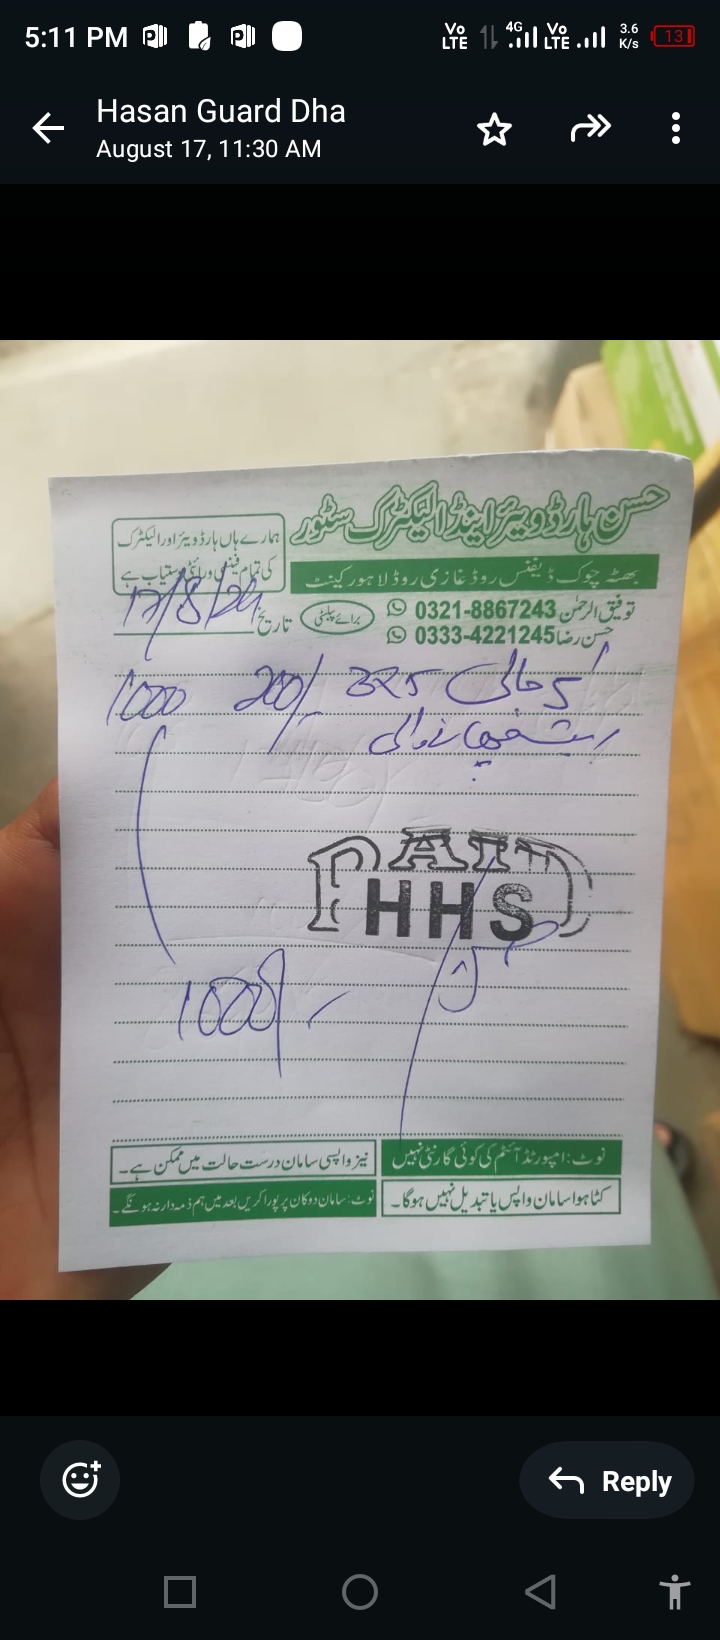 5:11 PM
Vo LTE 4G Vo LTE 3.6 K/s 13
Hasan Guard Dha
August 17, 11:30 AM
حسن ہارڈویئر اینڈ الیکٹرک سٹور
ہمارے ہاں ہارڈویئر اور الیکٹرک
کی تمام فینسی ورائٹی دستیاب ہے
بھٹہ چوک ڈیفنس روڈ غازی روڈ لاہور کینٹ
توفیق الرحمٰن 0321-8867243
حسن رضا 0333-4221245
برائے پبلسٹی
تاریخ 17/8/24
جالی 325 200/- 1000
والی
PAID
HHS
1000/-
نوٹ: امپورٹڈ آئٹم کی کوئی گارنٹی نہیں
نیز واپسی سامان درست حالت میں ممکن ہے۔
کٹا ہوا سامان واپس یا تبدیل نہیں ہوگا۔
نوٹ: سامان دوکان پر پورا کریں بعد میں ہم ذمہ دار نہ ہونگے۔
Reply